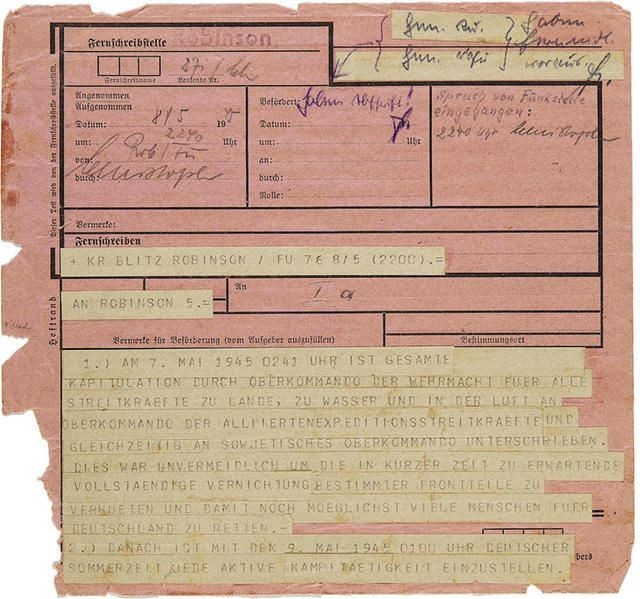 Fernschreibstelle
Robinson
Fernschreibname
Laufende Nr.
Angenommen
Aufgenommen
Datum: 8/5 195
um: 2240 Uhr
von: Rob/Fu
durch:
Befördert:
Datum:
um: Uhr
an:
durch:
Rolle:
Spruch von Funkstelle
eingegangen:
2240 Uhr
Dieser Teil wird von der Fernschreibstelle ausgefüllt.
Vermerke:
Fernschreiben
+ KR BLITZ ROBINSON / FU 76 8/5 (2200).=
AN ROBINSON 5.=
An
I a
Heftrand
Vermerke für Beförderung (vom Aufgeber auszufüllen)
Bestimmungsort
1.) AM 7. MAI 1945 0241 UHR IST GESAMTE
KAPITULATION DURCH OBERKOMMANDO DER WEHRMACHT FUER ALLE
STREITKRAEFTE ZU LANDE, ZU WASSER UND IN DER LUFT AN
OBERKOMMANDO DER ALLIIERTENEXPEDITIONSSTREITKRAEFTE UND
GLEICHZEITIG AN SOWJETISCHES OBERKOMMANDO UNTERSCHRIEBEN.
DIES WAR UNVERMEIDLICH UM DIE IN KURZER ZEIT ZU ERWARTENDE
VOLLSTAENDIGE VERNICHTUNG BESTIMMTER FRONTTEILE ZU
VERHUETEN UND DAMIT NOCH MOEGLICHST VIELE MENSCHEN FUER
DEUTSCHLAND ZU RETTEN.-
2.) DANACH IST MIT DEM 9. MAI 1945 0100 UHR DEUTSCHER
SOMMERZEIT JEDE AKTIVE KAMPFTAETIGKEIT EINZUSTELLEN.
bers